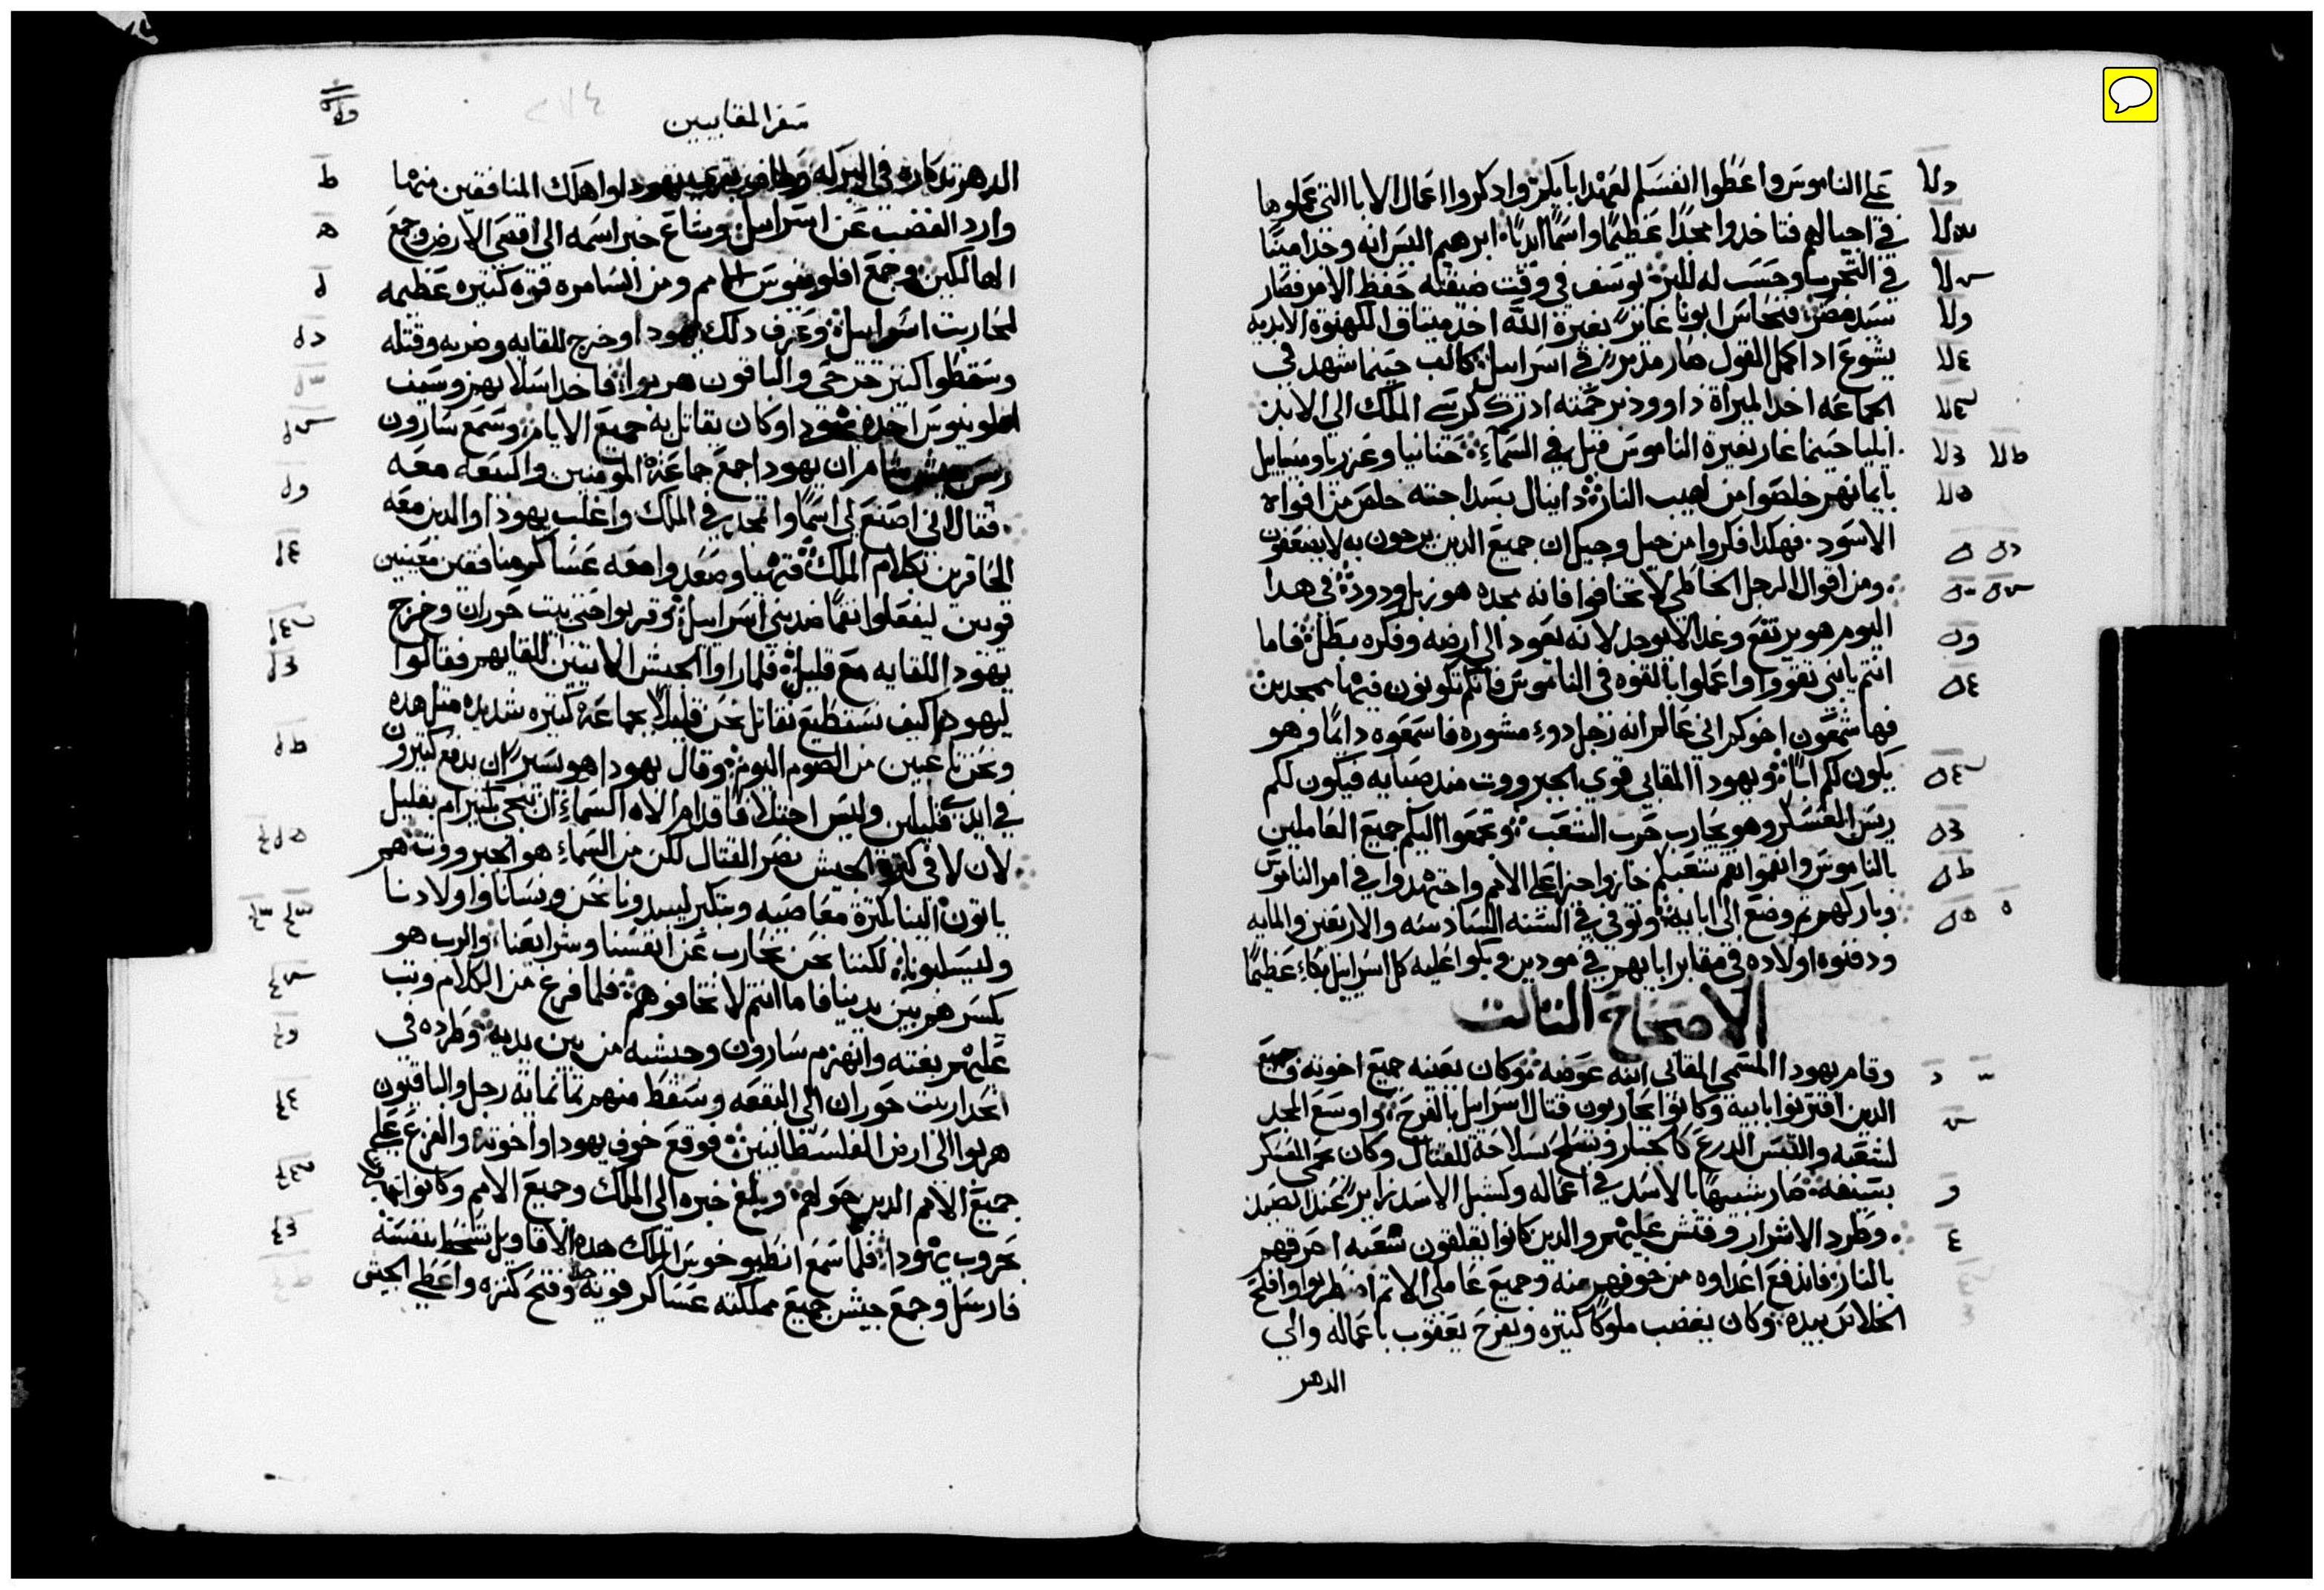 علي الناموس واعطوا انفسكم لعهد ابايكم واذكروا اعمال الابا التي عملوها
في اجيالهم فتاخدوا مجدًا عظيمًا واسمًا ابديًا ابرهيم اليس انه وجد امينًا
في التجربه وحسب له للبر يوسف في وقت ضيقته حفظ الامر فصار
سيد مصر فنحاس ابونا غايرًا بغيرة الله اخد ميتاق الكهنوة الابديه
يشوع اد اكمل القول صار مدبر في اسراييل كالب حينما شهد في
الجماعه اخد الميراة داوود برحمته ادرك كرسي الملك الي الابد
ايليا حينما غار بغيرة الناموس قبل في السماء حنانيا وعزريا وميصاييل
بايمانهم خلصوا من لهيب النار دانيال بسداجته خلص من افواه
الاسود فهكدا فكروا من جيل وجيل ان جميع الدين يرجون به لا يضعفون
ومن اقوال الرجل الخاطي لا تخافوا فانه مجده هو زبل ودود في هدا
اليوم هو يرتفع وغدا لا يوجد لانه يعود الي ارضه وفكره يبطل فاما
انتم يابني تقووا واعملوا بالقوه في الناموس فانكم تكونون فيها ممجدين
فها شمعون اخوكم اني عالم انه رجل دو مشوره فاسمعوه دايمًا وهو
يكون لكم ابًا ويهودا المقابي قوي الجبرووت مند صبايه فيكون لكم
ريس العسكر وهو يحارب حرب الشعب وتجمعوا اليكم جميع العاملين
بالناموس وانقموا نقم شعبكم جازوا جزا علي الامم واجتهدوا في امر الناموس
وباركهم تم وضع الي ابايه وتوفي في السنه السادسه والاربعين والمايه
ودفنوه اولاده في مقابر ابايهم في مودين وبكوا عليه كل اسراييل بكاء عظيمًا
الاصحاح التالت
وقام يهودا المسمي المقابي ابنه عوضه وكان يعينه جميع اخوته وجميع
الدين اقتربوا بابيه وكانوا يحاربون قتال اسراييل بالفرح واوسع المجد
لشعبه والتبس الدرع كالجبار وتسلح بسلاحه للقتال وكان يحمي العسكر
بسيفه صار شبيهًا بالاسد في اعماله وكشبل الاسد زايرًا عند الصيد
وطرد الاشرار وفتش عليهم والدين كانوا يقلقون شعبه احرقهم
بالنار فاندفع اعداوه من خوفهم منه وجميع عاملي الاتم اضطربوا وافلح
الخلاص بيده وكان يغضب ملوكًا كتيره ويفرح يعقوب باعماله والي
الدهر
سفر المقابيين
الدهر تدكاره في البركه يهودا واهلك المنافقين منها
وارد الغضب عن اسراييل وشاع خبر اسمه الي اقصي الارض وجمع
الهالكين وجمع افلونيوس الامم ومن السامره قوه كتيره عظيمه
لمحاربت اسراييل وعرف دلك يهودا وخرج للقايه وضربه وقتله
وسقطوا كتير جرحي والباقون هربوا فاخد اسلابهم وسيف
افلونيوس اخده يهودا وكان يقاتل به جميع الايام وسمع سارون
ريس جيش شام ان يهودا جمع جماعة المومنين والبيعه معه
فقال اني اصنع لي اسمًا واتمجد في الملك واغلب يهودا والدين معه
الحاقرين بكلام الملك فتهيا وصعدوا معه عساكر منافقين معينين
قويين ليفعلوا نقمًا ضد بني اسراييل وقربوا حتي بيت حوران وخرج
يهودا للقايه مع قليل فلما راوا الجيش الاتيين للقايهم فقالوا
ليهودا كيف نستطيع نقاتل نحن قليلًا بجماعة كتيره شديده متل هده
ونحن تاعبين من الصوم اليوم وقال يهودا هو يسيرًا ان يدفع كتيرون
في ايدي قليلين وليس اختلافًا قدام الاه السماء ان ينجي بكتير ام بقليل
لان لا في كترة الجيش نصر القتال لكن من السماء هو الجبرووت هم
ياتون الينا بكترة معاصيه وبتكبر ليبيدونا نحن ونسانا واولادنا
وليسلبونا لكننا نحن نحارب عن انفسنا وشرايعنا والرب هو
يكسرهم بين يدينا فاما انتم لا تخافوهم فلما فرغ من الكلام وتب
عليهم بغته وانهزم سارون وجيشه من بين يديه وطرده في
انحدار بيت حوران الي البقعه وسقط منهم تمانمايه رجل والباقيون
هربوا الي ارض الفلسطانيين فوقع خوف يهودا واخوته والفزع علي
جميع الامم الدين حولهم وبلغ خبره الي الملك وجميع الامم وكانوا
بحروب يهودا فلما سمع انطيوخوس الملك هده الاقاويل تسخط بنفسه
فارسل وجمع جيش جميع مملكته عساكر قويه وفتح كنزه واعطي الجيش